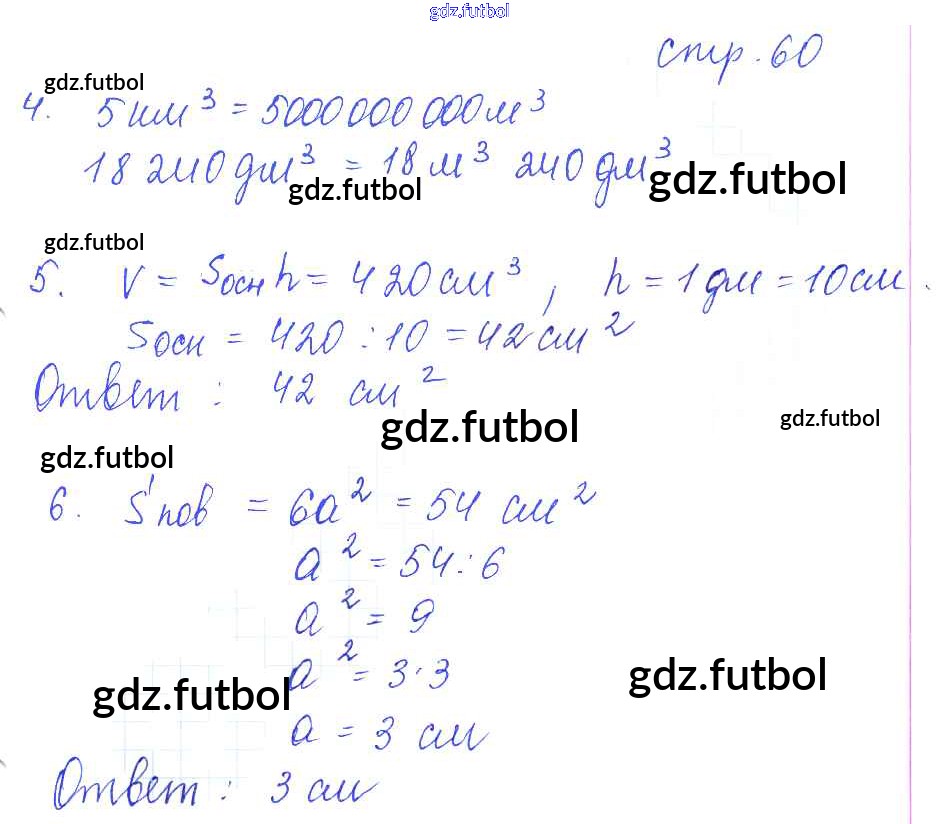 gdz.futbol
стр. 60
gdz.futbol
4. 5 км³ = 5000 000 000 м³
18 240 дм³ = 18 м³ 240 дм³
gdz.futbol gdz.futbol
gdz.futbol
5. V = Sоснh = 420 см³, h = 1 дм = 10 см.
Sосн = 420 : 10 = 42 см²
Ответ : 42 см²
gdz.futbol gdz.futbol
gdz.futbol
6. Sпов = 6a² = 54 см²
a² = 54 : 6
a² = 9
a² = 3 · 3
gdz.futbol gdz.futbol
a = 3 см
Ответ : 3 см